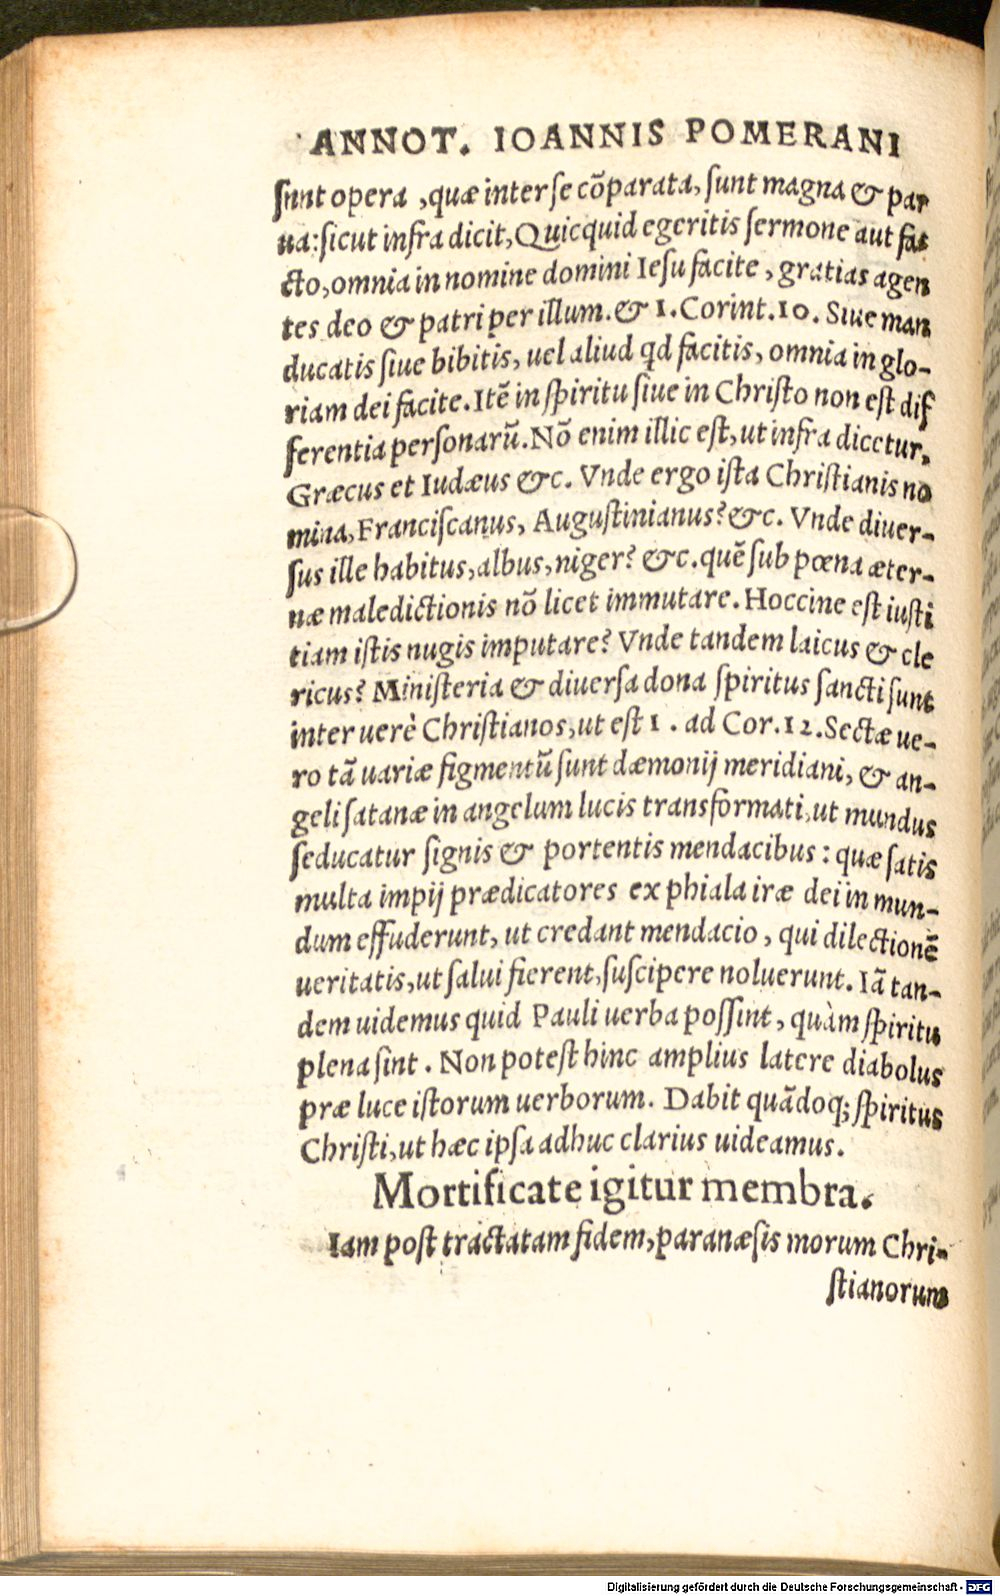 ANNOT. IOANNIS POMERANI
sunt opera, quæ inter se cõparata, sunt magna & par
ua: sicut infra dicit, Quicquid egeritis sermone aut fa
cto, omnia in nomine domini Iesu facite, gratias agen
tes deo & patri per illum. & 1. Corint. 10. Siue man
ducatis siue bibitis, uel aliud qd facitis, omnia in glo-
riam dei facite. Itẽ in spiritu siue in Christo non est dif
ferentia personarũ. Nõ enim illic est, ut infra dicetur,
Græcus et Iudæus &c. Vnde ergo ista Christianis no
mina, Franciscanus, Augustinianus? &c. Vnde diuer-
sus ille habitus, albus, niger? &c. quẽ sub pœna æter-
næ maledictionis nõ licet immutare. Hoccine est iusti
tiam istis nugis imputare? Vnde tandem laicus & cle
ricus? Ministeria & diuersa dona spiritus sancti sunt
inter uerè Christianos, ut est 1. ad Cor. 12. Sectæ ue-
ro tã uariæ figmentũ sunt dæmonij meridiani, & an-
geli satanæ in angelum lucis transformati, ut mundus
seducatur signis & portentis mendacibus: quæ satis
multa impij prædicatores ex phiala iræ dei in mun-
dum effuderunt, ut credant mendacio, qui dilectionẽ
ueritatis, ut salui fierent, suscipere noluerunt. Iã tan-
dem uidemus quid Pauli uerba possint, quàm spiritu
plena sint. Non potest hinc amplius latere diabolus
præ luce istorum uerborum. Dabit quãdoq; spiritus
Christi, ut hæc ipsa adhuc clarius uideamus.
Mortificate igitur membra.
Iam post tractatam fidem, paranæsis morum Chri-
stianorum
Digitalisierung gefördert durch die Deutsche Forschungsgemeinschaft - DFG